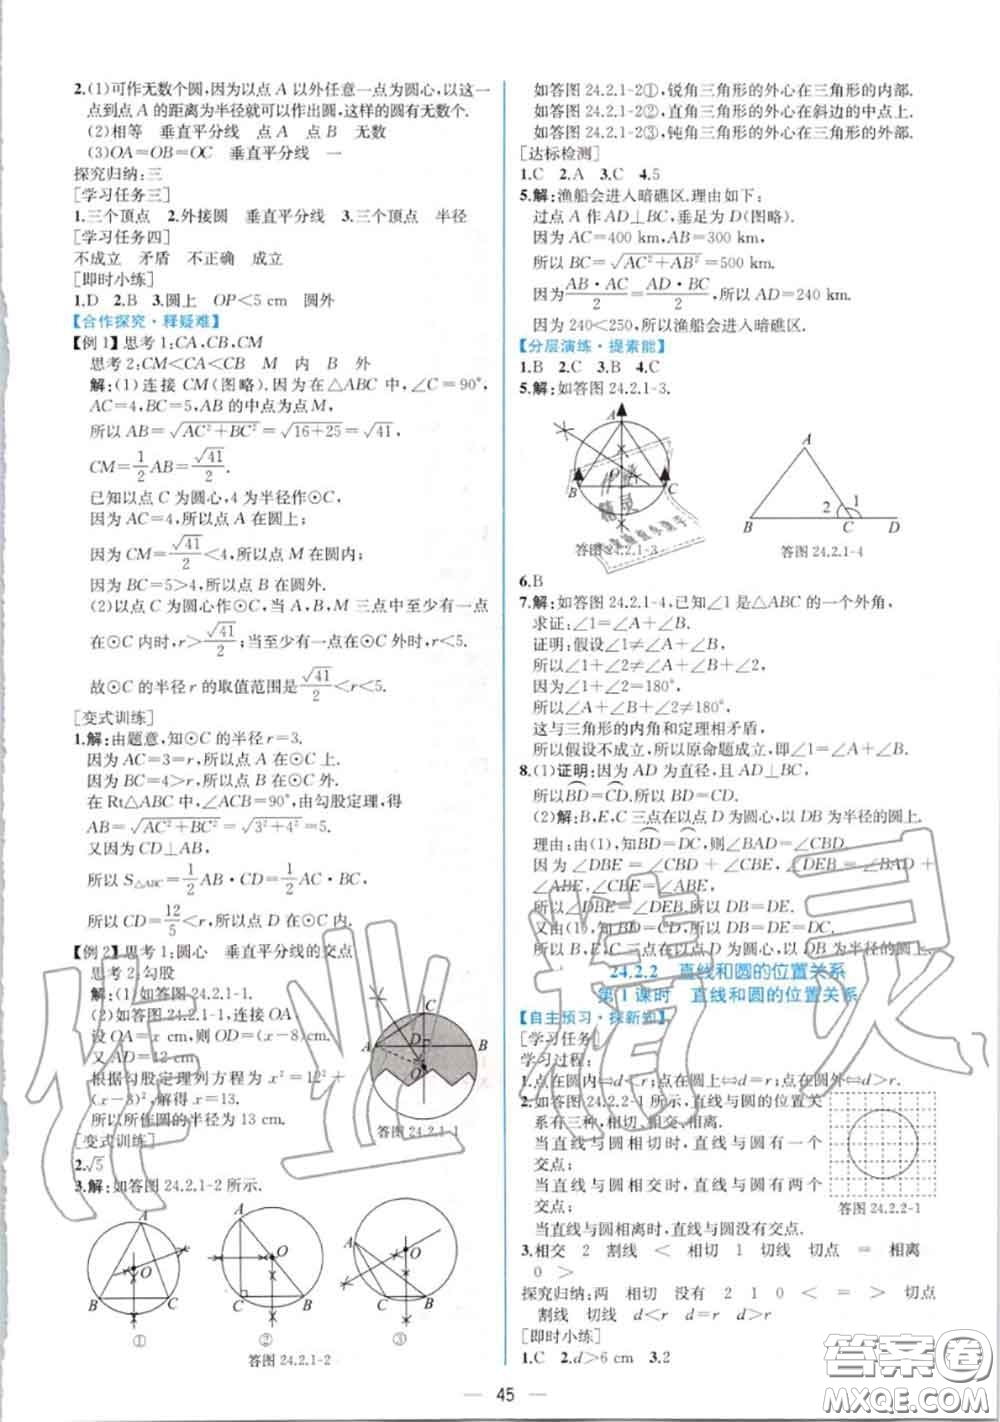 2.(1)可作无数个圆,因为以点 A 以外任意一点为圆心,以这一
点到点 A 的距离为半径就可以作出圆,这样的圆有无数个.
(2)相等 垂直平分线 点 A 点 B 无数
(3)OA=OB=OC 垂直平分线 一
探究归纳:三
[学习任务三]
1.三个顶点 2.外接圆 垂直平分线 3.三个顶点 半径
[学习任务四]
不成立 矛盾 不正确 成立
[即时小练]
1.D 2.B 3.圆上 OP<5 cm 圆外
【合作探究·释疑难】
【例 1】思考 1:CA,CB,CM
思考 2:CM<CA<CB M 内 B 外
解:(1)连接 CM(图略).因为在△ABC 中,∠C=90°,
AC=4,BC=5,AB 的中点为点 M,
所以 AB=√(AC²+BC²)=√(16+25)=√41,
CM=1/2 AB=√41/2.
已知以点 C 为圆心,4 为半径作⊙C,
因为 AC=4,所以点 A 在圆上;
因为 CM=√41/2<4,所以点 M 在圆内;
因为 BC=5>4,所以点 B 在圆外.
(2)以点 C 为圆心作⊙C,当 A,B,M 三点中至少有一点
在⊙C 内时,r>√41/2;当至少有一点在⊙C 外时,r<5.
故⊙C 的半径 r 的取值范围是√41/2<r<5.
[变式训练]
1.解:由题意,知⊙C 的半径 r=3.
因为 AC=3=r,所以点 A 在⊙C 上.
因为 BC=4>r,所以点 B 在⊙C 外.
在 Rt△ABC 中,∠ACB=90°,由勾股定理,得
AB=√(AC²+BC²)=√(3²+4²)=5.
又因为 CD⊥AB,
所以 S△ABC=1/2 AB·CD=1/2 AC·BC,
所以 CD=12/5<r,所以点 D 在⊙C 内.
【例 2】思考 1:圆心 垂直平分线的交点
思考 2:勾股
解:(1)如答图 24.2.1-1.
(2)如答图 24.2.1-1,连接 OA,
设 OA=x cm,则 OD=(x-8)cm.
又 AD=12 cm,
根据勾股定理列方程为 x²=12²+
(x-8)²,解得 x=13.
所以所作圆的半径为 13 cm.
A D B C O
答图 24.2.1-1
[变式训练]
2.√5
3.解:如答图 24.2.1-2 所示.
A B C O
A B C O
A B C O
① ② ③
答图 24.2.1-2
如答图 24.2.1-2①,锐角三角形的外心在三角形的内部.
如答图 24.2.1-2②,直角三角形的外心在斜边的中点上.
如答图 24.2.1-2③,钝角三角形的外心在三角形的外部.
[达标检测]
1.C 2.A 3.C 4.5
5.解:渔船会进入暗礁区.理由如下:
过点 A 作 AD⊥BC,垂足为 D(图略).
因为 AC=400 km,AB=300 km,
所以 BC=√(AC²+AB²)=500 km.
因为 AB·AC/2=AD·BC/2,所以 AD=240 km.
因为 240<250,所以渔船会进入暗礁区.
【分层演练·提素能】
1.B 2.C 3.B 4.C
5.解:如答图 24.2.1-3.
A B C O
答图 24.2.1-3
A B C D 1 2
答图 24.2.1-4
6.B
7.解:如答图 24.2.1-4,已知∠1是△ABC 的一个外角,
求证:∠1=∠A+∠B.
证明:假设∠1≠∠A+∠B,
所以∠1+∠2≠∠A+∠B+∠2,
因为∠1+∠2=180°,
所以∠A+∠B+∠2≠180°,
这与三角形的内角和定理相矛盾,
所以假设不成立,所以原命题成立,即∠1=∠A+∠B.
8.(1)证明:因为 AD 为直径,且 AD⊥BC,
所以BD=CD.所以 BD=CD.
(2)解:B,E,C 三点在以点 D 为圆心,以 DB 为半径的圆上.
理由:由(1),知BD=DC,所以∠BAD=∠CBD.
因为∠DBE=∠CBD+∠CBE,∠DEB=∠BAD+
∠ABE,∠CBE=∠ABE,
所以∠DBE=∠DEB.所以 DB=DE.
又由(1),知 BD=DC,所以 DB=DE=DC.
所以 B,E,C 三点在以点 D 为圆心,以 DB 为半径的圆上.
24.2.2 直线和圆的位置关系
第 1 课时 直线和圆的位置关系
【自主预习·探新知】
[学习任务]
学习过程:
1.点在圆内⇔d<r;点在圆上⇔d=r;点在圆外⇔d>r.
2.如答图 24.2.2-1 所示,直线与圆的位置关
系有三种,相切、相交、相离.
当直线与圆相切时,直线与圆有一个
交点;
当直线与圆相交时,直线与圆有两个
交点;
当直线与圆相离时,直线与圆没有交点.
答图 24.2.2-1
3.相交 2 割线 < 相切 1 切线 切点 = 相离
0 >
探究归纳:两 相切 没有 2 1 0 < = > 切点
割线 切线 d<r d=r d>r
[即时小练]
1.C 2.d>6 cm 3.2
45
作业精灵
答案圈
MXQE.COM